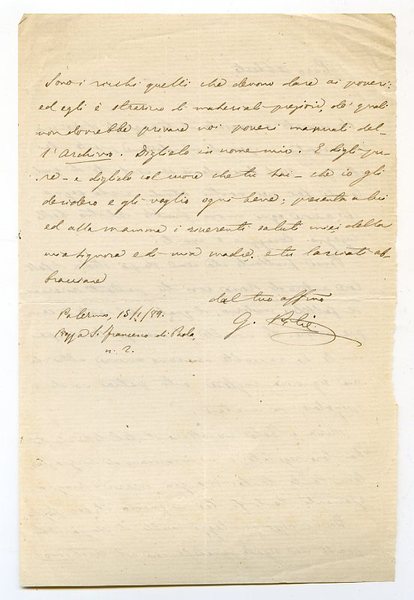 Sono i ricchi quelli che devono dare ai poveri:
ed egli è straricco di materiali preziosi, de' quali
non dovrebbe privare noi poveri manovali del-
l'Archivio. Diglielo in nome mio. E digli pu-
re - e diglielo col cuore che tu hai - che io gli
desidero e gli voglio ogni bene; presenta a lui
ed alla mamma i riverenti saluti miei della
mia signora e di mia madre, e tu lasciati ab-
bracciare
dal tuo affmo
G. Pitrè
Palermo, 15/1/89.
S. Francesco di Paola,
n. 2.